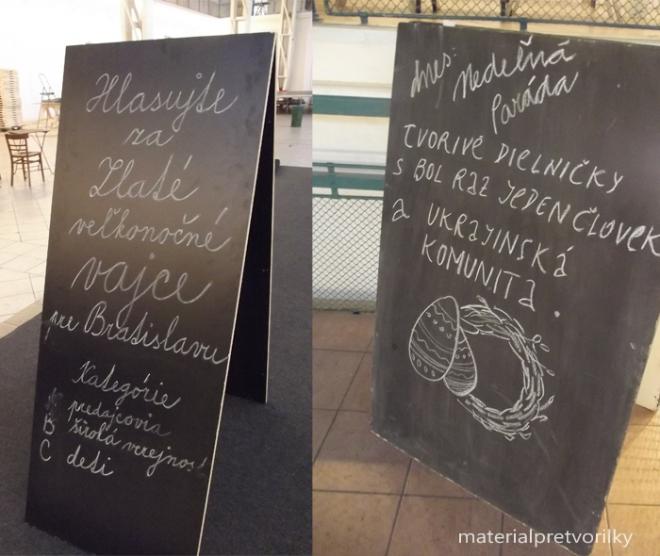 Hlasujte
za
Zlaté
veľkonočné
vajce
pre Bratislavu
Kategórie
predajcovia
B široká verejnosť
C deti
dnes Nedeľná
Paráda
TVORIVÉ DIELNIČKY
S BOL RAZ JEDEN ČLOVEK
a UKRAJINSKÁ
KOMUNITA.
materialpretvorilky